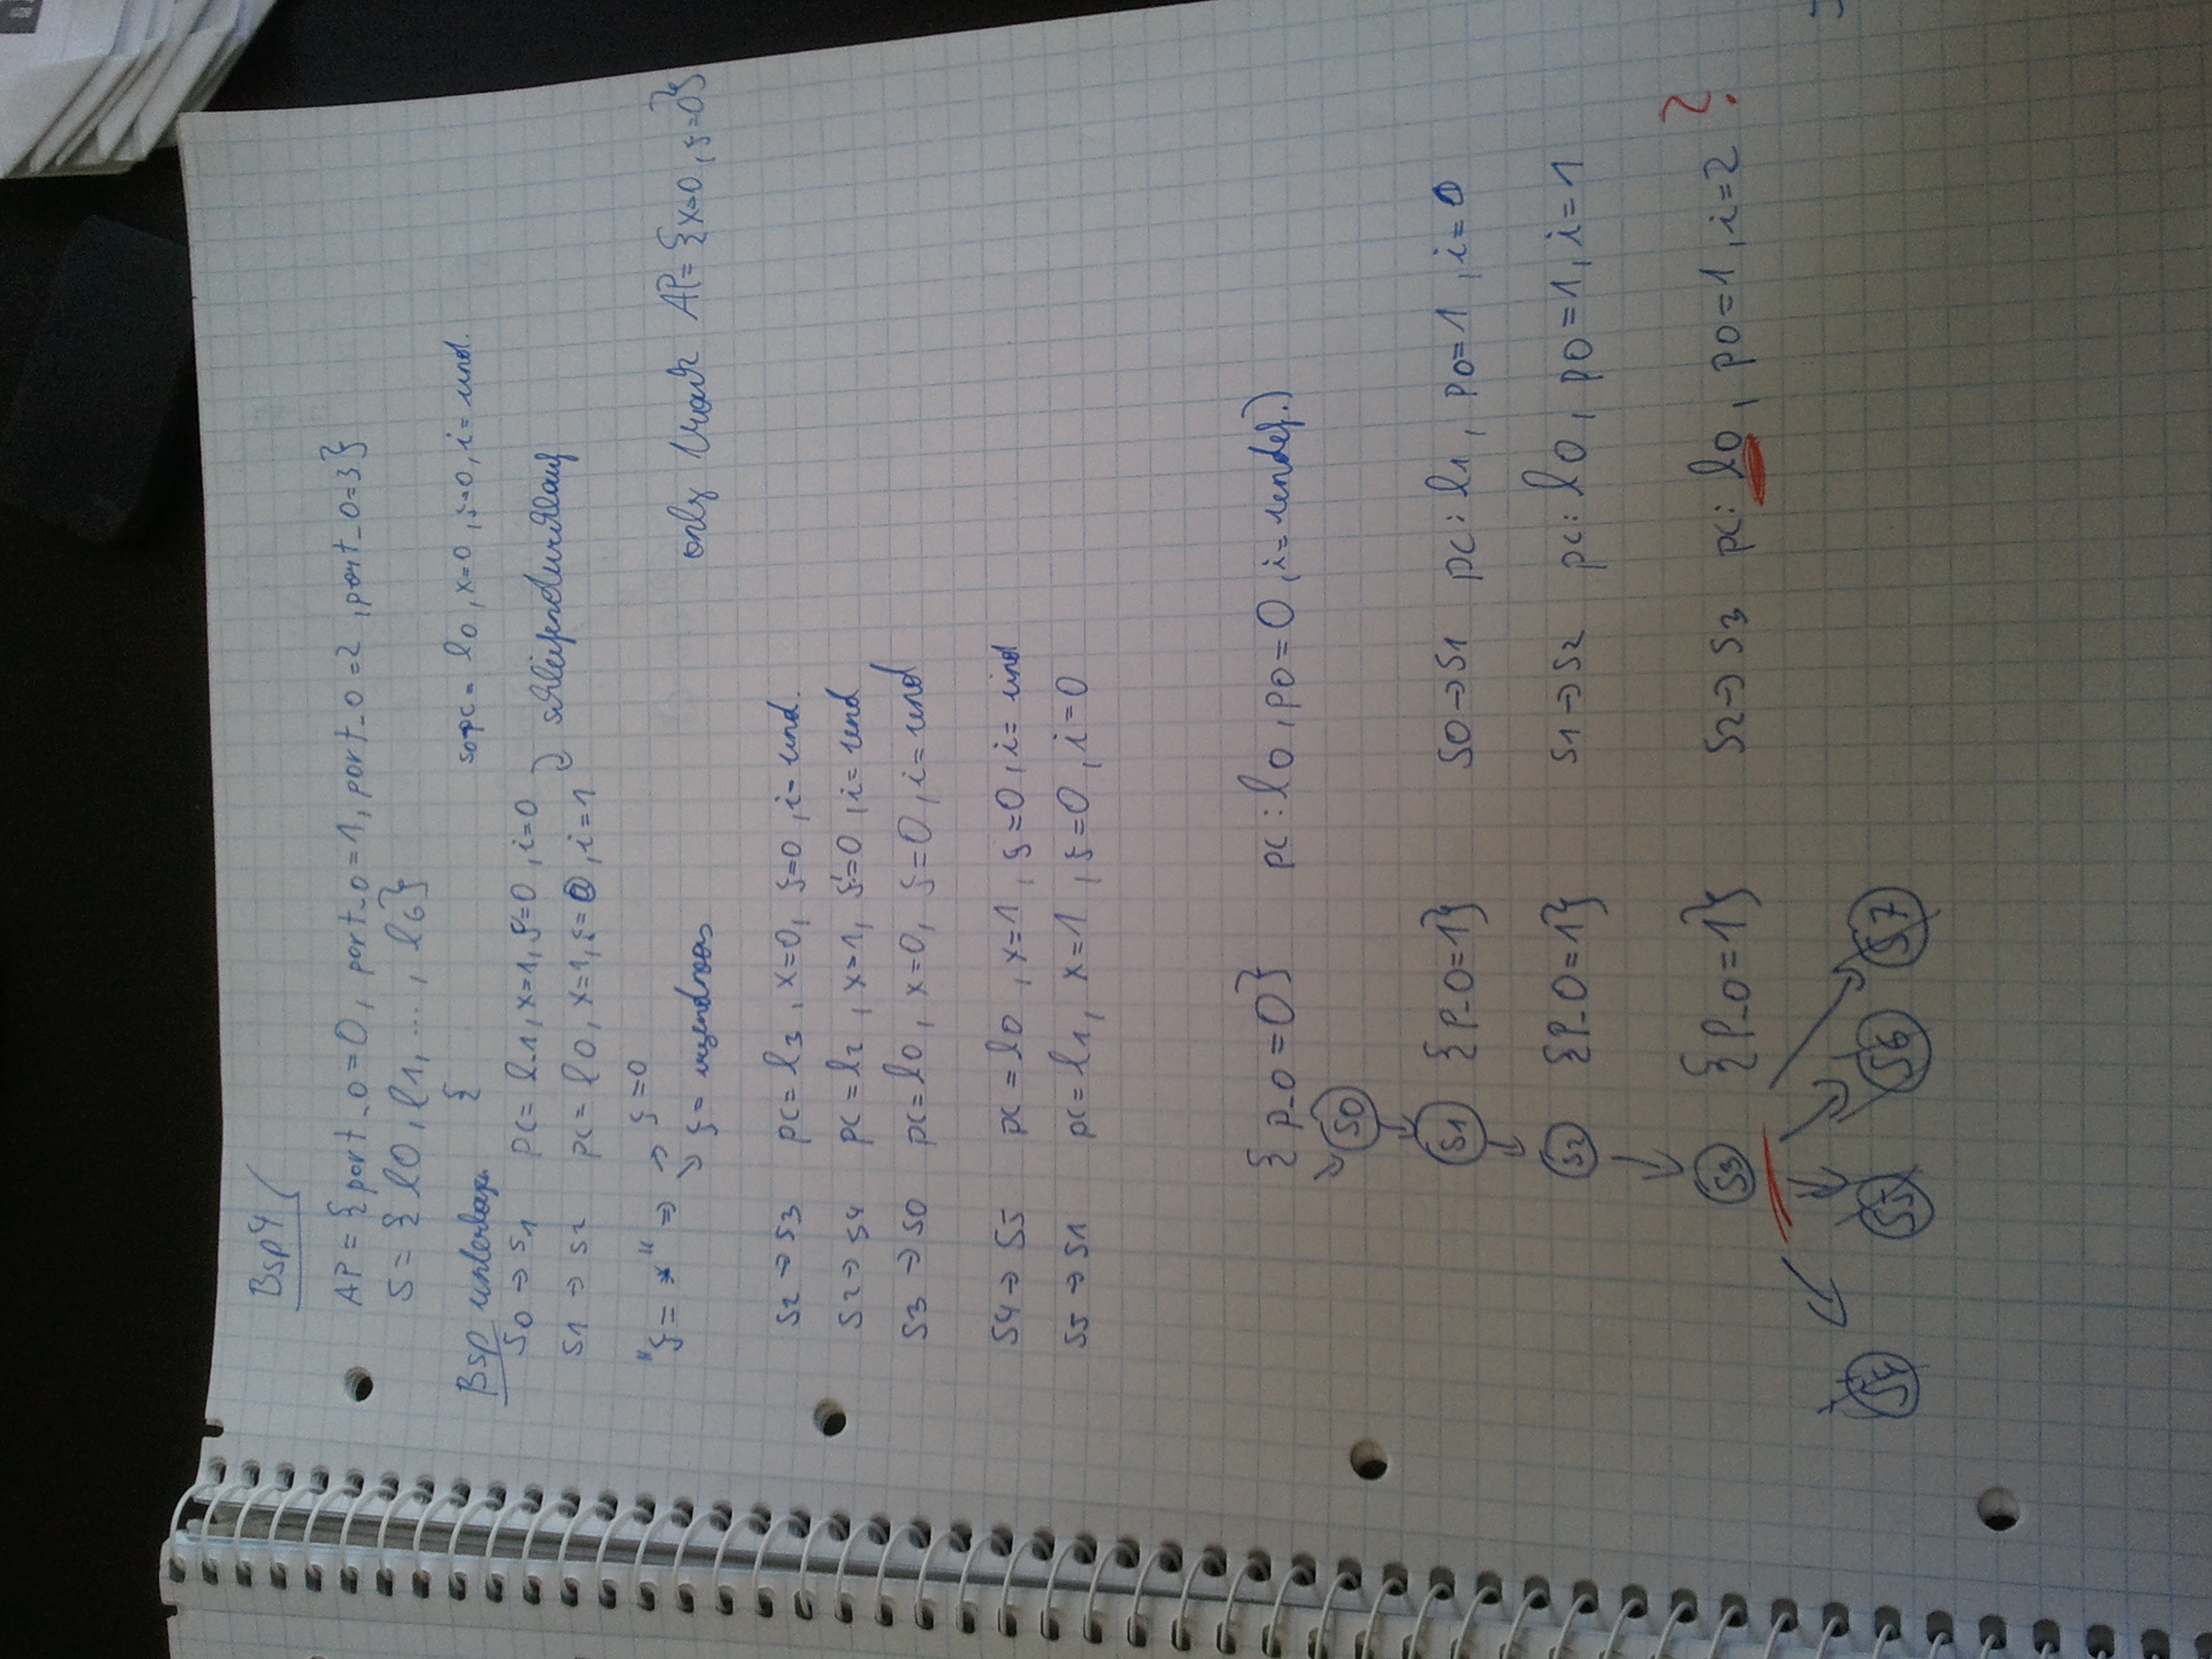 Bsp4
AP = {port_0=0, port_0=1, port_0=2, port_0=3}
S = {l0, l1, ..., l6}
{ s0 pc = l0, x=0, y=0, i= und.
Bsp unterlagen
S0 → S1 pc = l1, x=1, y=0, i=0
schleifendurchlauf
S1 → S2 pc = l0, x=1, y=0, i=1
"y = *" ⇒ → y=0
↘ y = irgendwas
only track AP = {x=0, y=0}
S2 → S3 pc = l3, x=0, y=0, i= und.
S2 → S4 pc = l2, x=1, y!=0, i= und
S3 → S0 pc = l0, x=0, y=0, i= und
S4 → S5 pc = l0, x=1, y=0, i= und
S5 → S1 pc = l1, x=1, y=0, i=0
{P_0=0} pc: l0, p0=0, i= undef.)
S0
S1 {P_0=1} S0 → S1 pc: l1, p0=1, i=0
S2 {P_0=1} S1 → S2 pc: l0, p0=1, i=1
S3 {P_0=1} S2 → S3 pc: l0, p0=1, i=2 ?
S4 S5 S6 S7